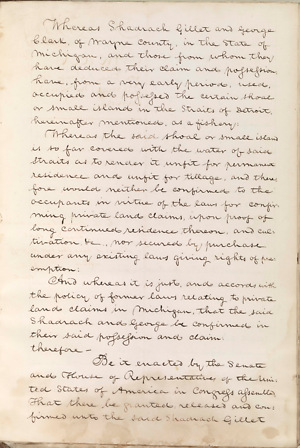 Whereas Shadrach Gillet and George
Clark, of Wayne County, in the State of
Michigan, and those from whom they
have deduced their claim and possession
have, from a very early period, used,
occupied and possessed the certain shoal
or small island in the Straits of Detroit,
hereinafter mentioned, as a fishery:
Whereas the said shoal or small island
is so far covered with the water of said
Straits as to render it unfit for permanent
residence and unfit for tillage, and there
fore would neither be confirmed to the
occupants in virtue of the laws for confir
ming private land claims, upon proof of
long continued residence thereon, and cul
tivation &c., nor secured by purchase
under any existing laws giving rights of pre
emption:
And whereas it is just, and accords with
the policy of former laws relating to private
land claims in Michigan, that the said
Shadrach and George be confirmed in
their said possession and claim:
therefore –
Be it enacted by the Senate
and House of Representatives of the Uni
ted States of America in Congress assembled
That there be granted released and con
firmed unto the said Shadrach Gillet